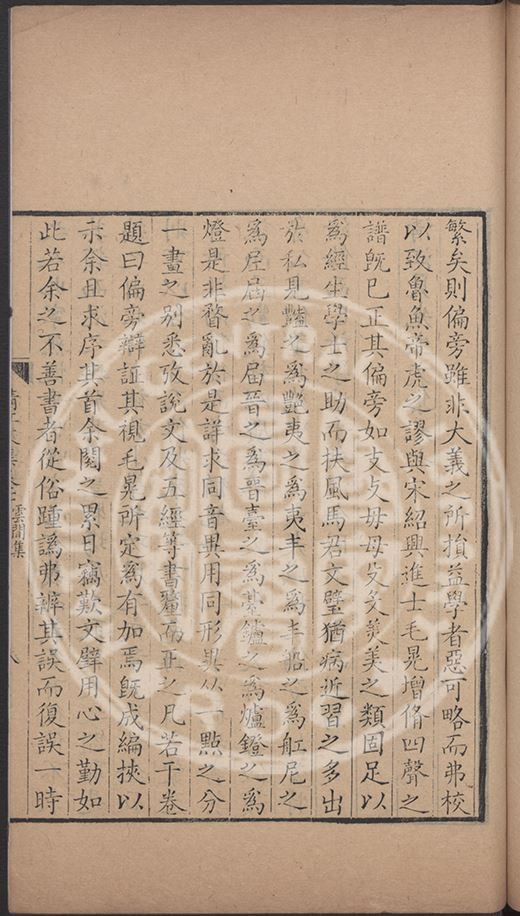 繁矣則偏旁雖非大義之所損益學者惡可略而弗校
以致魯魚帝虎之謬與宋紹興進士毛晃增脩四聲之
譜旣已正其偏旁如支攴毋母殳美之類固足以
爲經生學士之助而扶風馬君文璧猶病近習之多出
於私見豔之爲艷夷之爲夷丰之爲丰船之爲舡尼之
爲𡰱屆之爲届晉之爲晋臺之爲䑓鑪之爲爐鐙之爲
燈是非瞀亂於是詳求同音異用同形異从一點之分
一畫之別悉攷說文及五經等書釐而正之凡若干卷
題曰偏旁辯証其視毛晃所定爲有加焉旣成編挾以
示余且求序其首余閱之累日竊歎文璧用心之勤如
此若余之不善書者從俗踵譌弗辨其誤而復誤一時
清江文集 雲間集 八